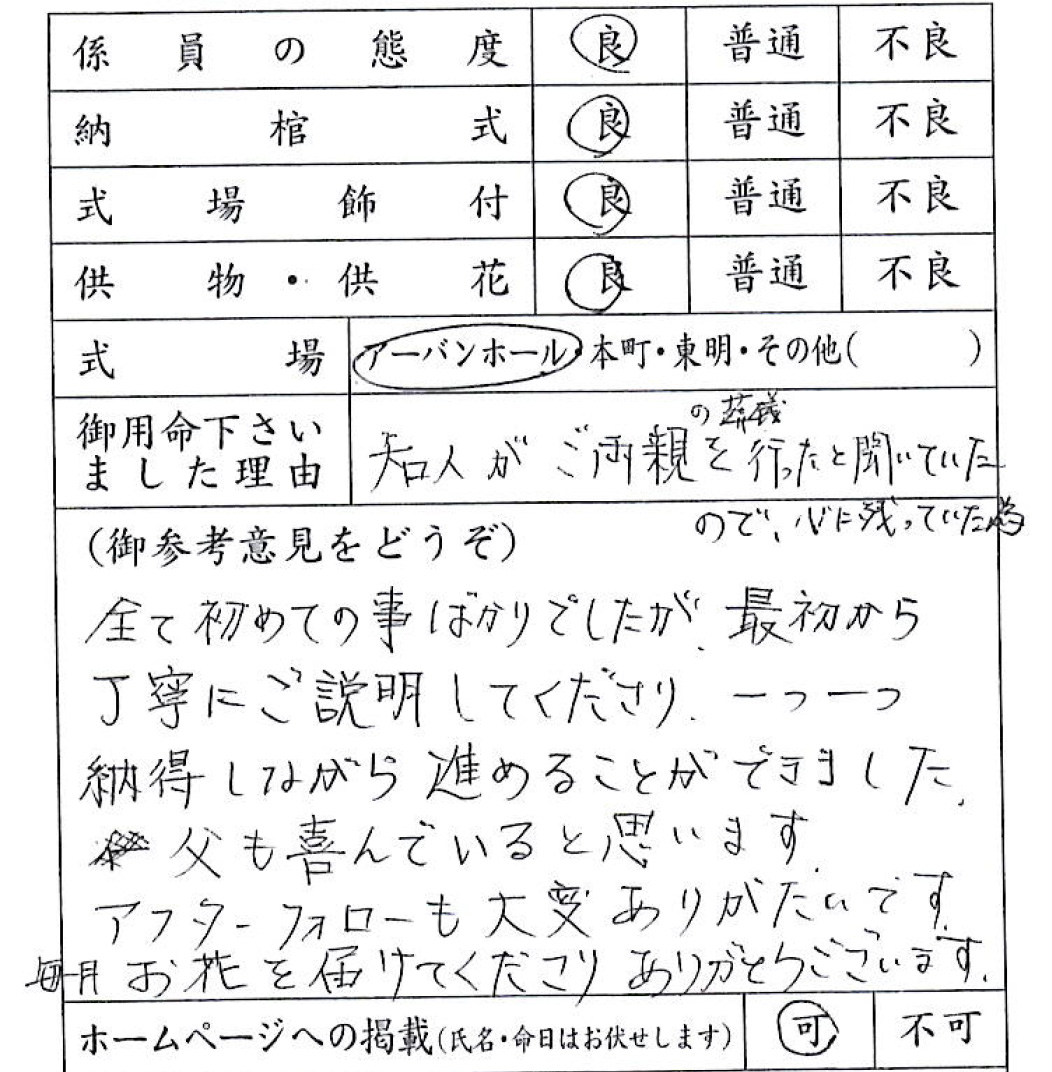 係員の態度 良 普通 不良
納棺式 良 普通 不良
式場飾付 良 普通 不良
供物・供花 良 普通 不良
式場 アーバンホール・本町・東明・その他( )
御用命下さいました理由
知人がご両親の葬儀を行ったと聞いていた
ので、心に残っていた為
(御参考意見をどうぞ)
全て初めての事ばかりでしたが、最初から
丁寧にご説明してくださり、一つ一つ
納得しながら進めることができました。
父も喜んでいると思います。
アフターフォローも大変ありがたいです。
毎月お花を届けてくださりありがとうございます。
ホームページへの掲載(氏名・命日はお伏せします) 可 不可